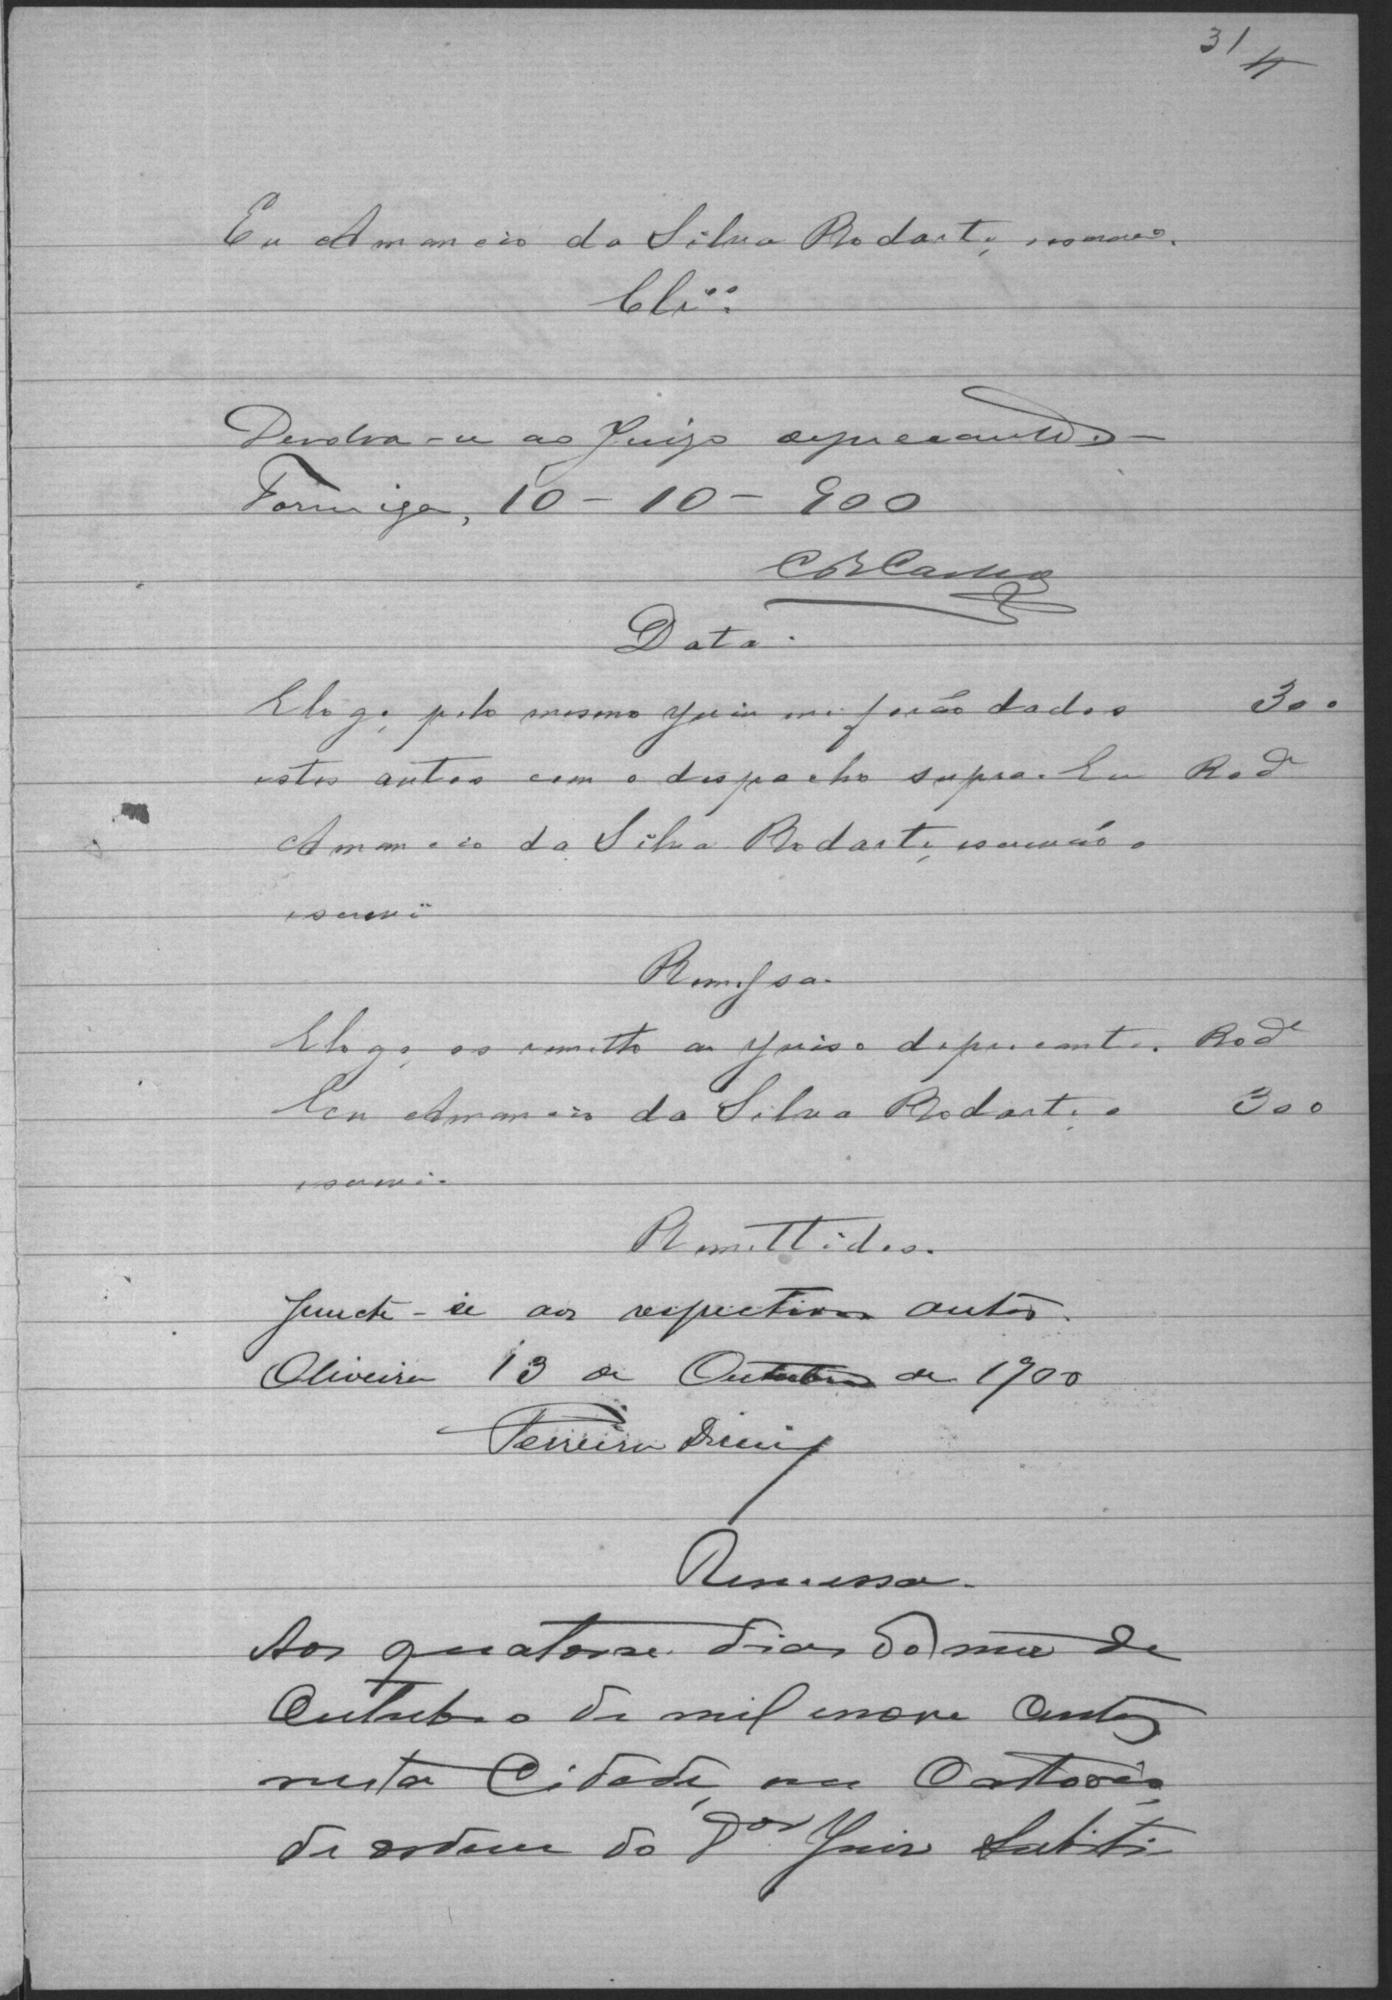 31
Eu Amancio da Silva Rodarte, escrivão.
Clsºº:
Devolva-se ao Juizo deprecante.
Formiga, 10-10-900
Data.
E logo, pelo mesmo Juiz me forão dados 300
estes autos com o despacho supra. Eu Rodᵉ
Amancio da Silva Rodarte, escrivão o
escrevi
Remessa.
E logo, os remetto ao Juiso deprecante. Rodᵉ
Eu Amancio da Silva Rodarte, o 300
escrevi.
Remettidos.
Juncte-se aos respectivos autos.
Oliveira 13 de Outubro de 1900
Ferreira Diniz
Remessa.
Aos quatorse dias do mez de
Outubro de mil enove centos
nesta Cidade, em Cartorio,
de ordem do Dor Juiz Substi